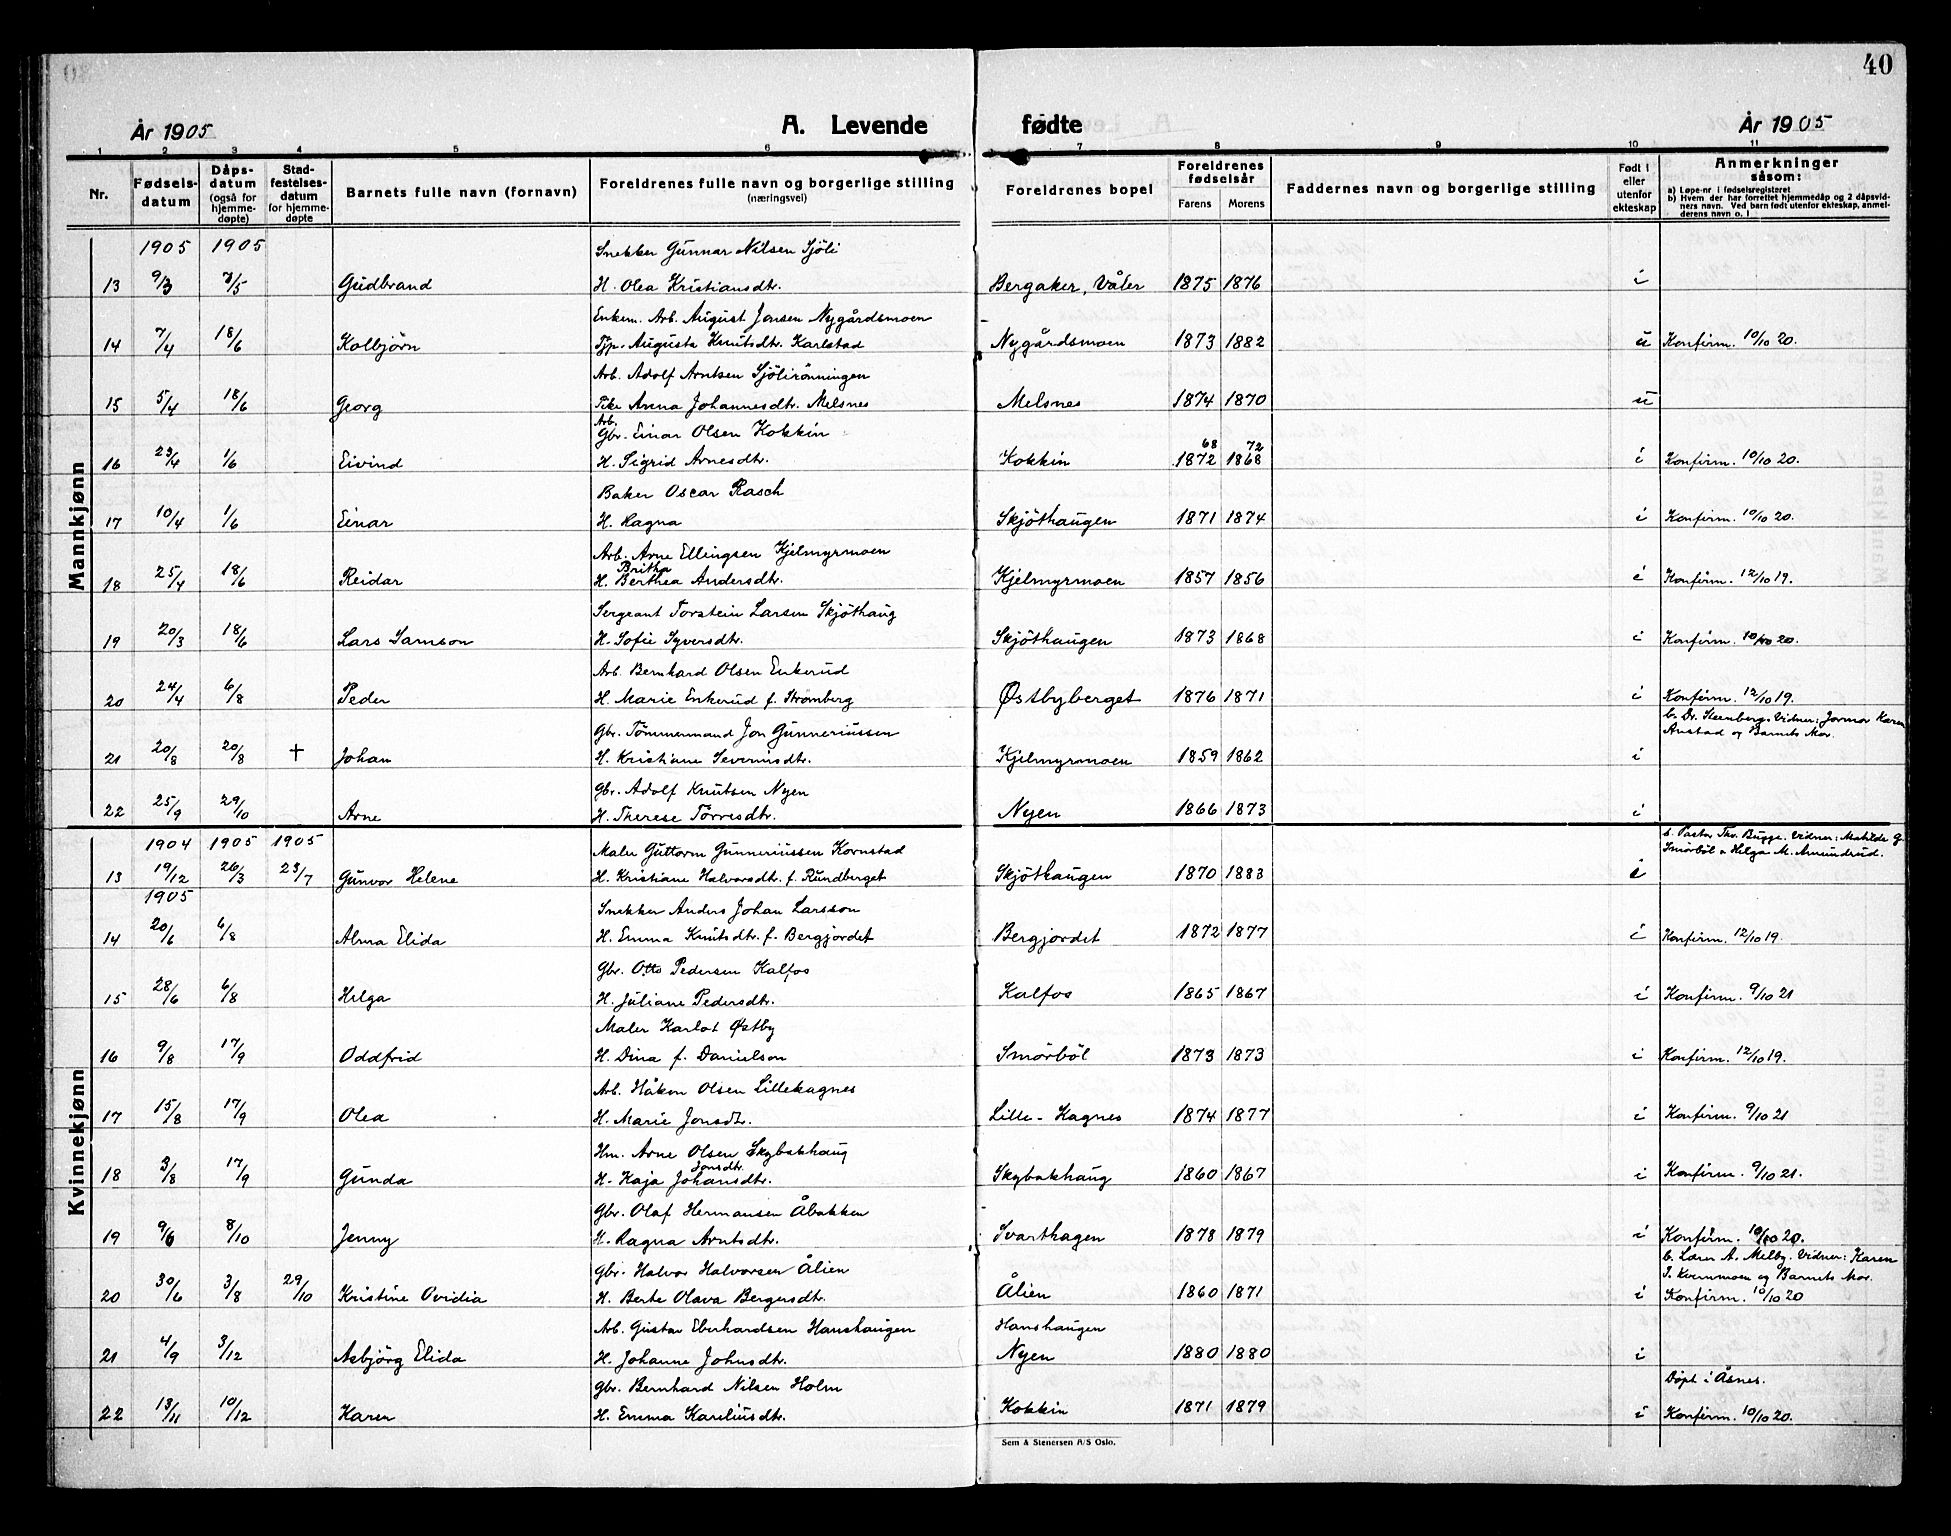 40
År 1905 A. Levende fødte År 1905
1 2 3 4 5 6 7 8 9 10 11
Nr. Fødsels-datum Dåps-datum (også for hjemme-døpte) Stad-festelses-datum for hjemme-døpte Barnets fulle navn (fornavn) Foreldrenes fulle navn og borgerlige stilling (næringsvei) Foreldrenes bopel Foreldrenes fødselsår Farens Morens Faddernes navn og borgerlige stilling Født i eller utenfor ekteskap Anmerkninger såsom:
a) Løpe-nr. i fødselsregisteret
b) Hvem der har forrettet hjemmedåp og 2 dåpsvidners navn. Ved barn født utenfor ekteskap, anmelderens navn o. l
Mannkjønn
1905 1905 Snekker Gunnar Nilsen Sjöli
13 9/3 7/5 Gudbrand H. Olea Kristiansdtr. Bergaker, Våler 1875 1876 i
Enkem. Arb. August Jonsen Nygårdsmoen
14 7/4 18/6 Kolbjörn Tjp. Augusta Knutsdtr. Karlstad Nygårdsmoen 1873 1882 u Konfirm. 10/10 20.
Arb. Adolf Arntsen Sjölirönningen
15 5/4 18/6 Georg Pike Anna Johannesdtr. Melsnes Melsnes 1874 1870 u
Arb.
Gbr. Einar Olsen Kokkin 68 72
16 23/4 1/6 Eivind H. Sigrid Arnesdtr. Kokkin 1872 1868 i Konfirm. 10/10 20.
Baker Oscar Rasch
17 10/4 1/6 Einar H. Ragna Skjöthaugen 1871 1874 i Konfirm. 10/10 20.
Arb. Arne Ellingsen Kjelmyrmoen
Britha
18 25/4 18/6 Reidar H. Berthea Andersdtr. Kjelmyrmoen 1857 1856 i Konfirm. 12/10 19.
Sergeant Torstein Larsen Skjöthaug
19 20/3 18/6 Lars Samson H. Sofie Syversdtr. Skjöthaugen 1873 1868 i Konfirm. 10/10 20.
Arb. Bernhard Olsen Enkerud
20 24/4 6/8 Peder H. Marie Enkerud f. Stromberg Østbyberget 1876 1871 i Konfirm. 12/10 19.
Gbr. Tömmermand Jon Gunneriussen b. Dr. Steenberg. Vidner: Jormor Karen Anstad og Barnets Mor.
21 20/8 20/8 † Johan H. Kristiane Severinsdtr. Kjelmyrmoen 1859 1862 i
Gbr. Adolf Knutsen Nyen
22 25/9 29/10 Arne H. Therese Törresdtr. Nyen 1866 1873 i
Kvinnekjønn
1904 1905 1905 Maler Guttorm Gunneriussen Kornstad Pastor Thv. Bugge. Vidner: Mathilde G. Smörböl & Helga M. Amundrud.
13 19/12 26/3 23/7 Gunvor Helene H. Kristiane Halvorsdtr. f. Rundberget Skjöthaugen 1870 1883 i
1905 Snekker Anders Johan Larsson
14 20/6 6/8 Alma Elida H. Emma Knutsdtr. f. Bergjordet Bergjordet 1872 1877 i Konfirm. 12/10 19.
Gbr. Otto Pedersen Kalfos
15 28/6 6/8 Helga H. Juliane Pedersdtr. Kalfos 1865 1867 i Konfirm. 9/10 21
Maler Karlot Østby
16 9/8 17/9 Oddfrid H. Dina f. Danielson Smörböl 1873 1873 i Konfirm. 12/10 19.
Arb. Håkon Olsen Lillekagnes
17 15/8 17/9 Olea H. Marie Jonsdtr. Lille-Kagnes 1874 1877 i Konfirm. 9/10 21
Hm. Arne Olsen Skybakhaug
Jonsdtr.
18 3/8 17/9 Gunda H. Kaja Johansdtr. Skybakhaug 1860 1867 i Konfirm. 9/10 21.
Gbr. Olaf Hermansen Åbakken
19 9/6 8/10 Jenny H. Ragna Arntsdtr. Svarthagen 1878 1879 i Konfirm. 10/10 20.
Gbr. Halvor Halvorsen Ålien b. Lærer A. Melby. Vidner: Karen J. Kvernmoen og Barnets Mor.
20 30/6 3/8 29/10 Kristine Ovidia H. Berte Olava Bergersdtr. Ålien 1860 1871 i Konfirm. 10/10 20
Arb. Gustav Eberhardsen Hanshaugen Hanshaugen
21 4/9 3/12 Asbjörg Elida H. Johanne Johnsdtr. Nyen 1880 1880 i
Gbr. Bernhard Nilsen Holm Döpt i Åsnes.
22 13/11 10/12 Karen H. Emma Kareliusdtr. Kokkin 1871 1879 i Konfirm. 10/10 20.
Sem & Stenersen A/S Oslo.